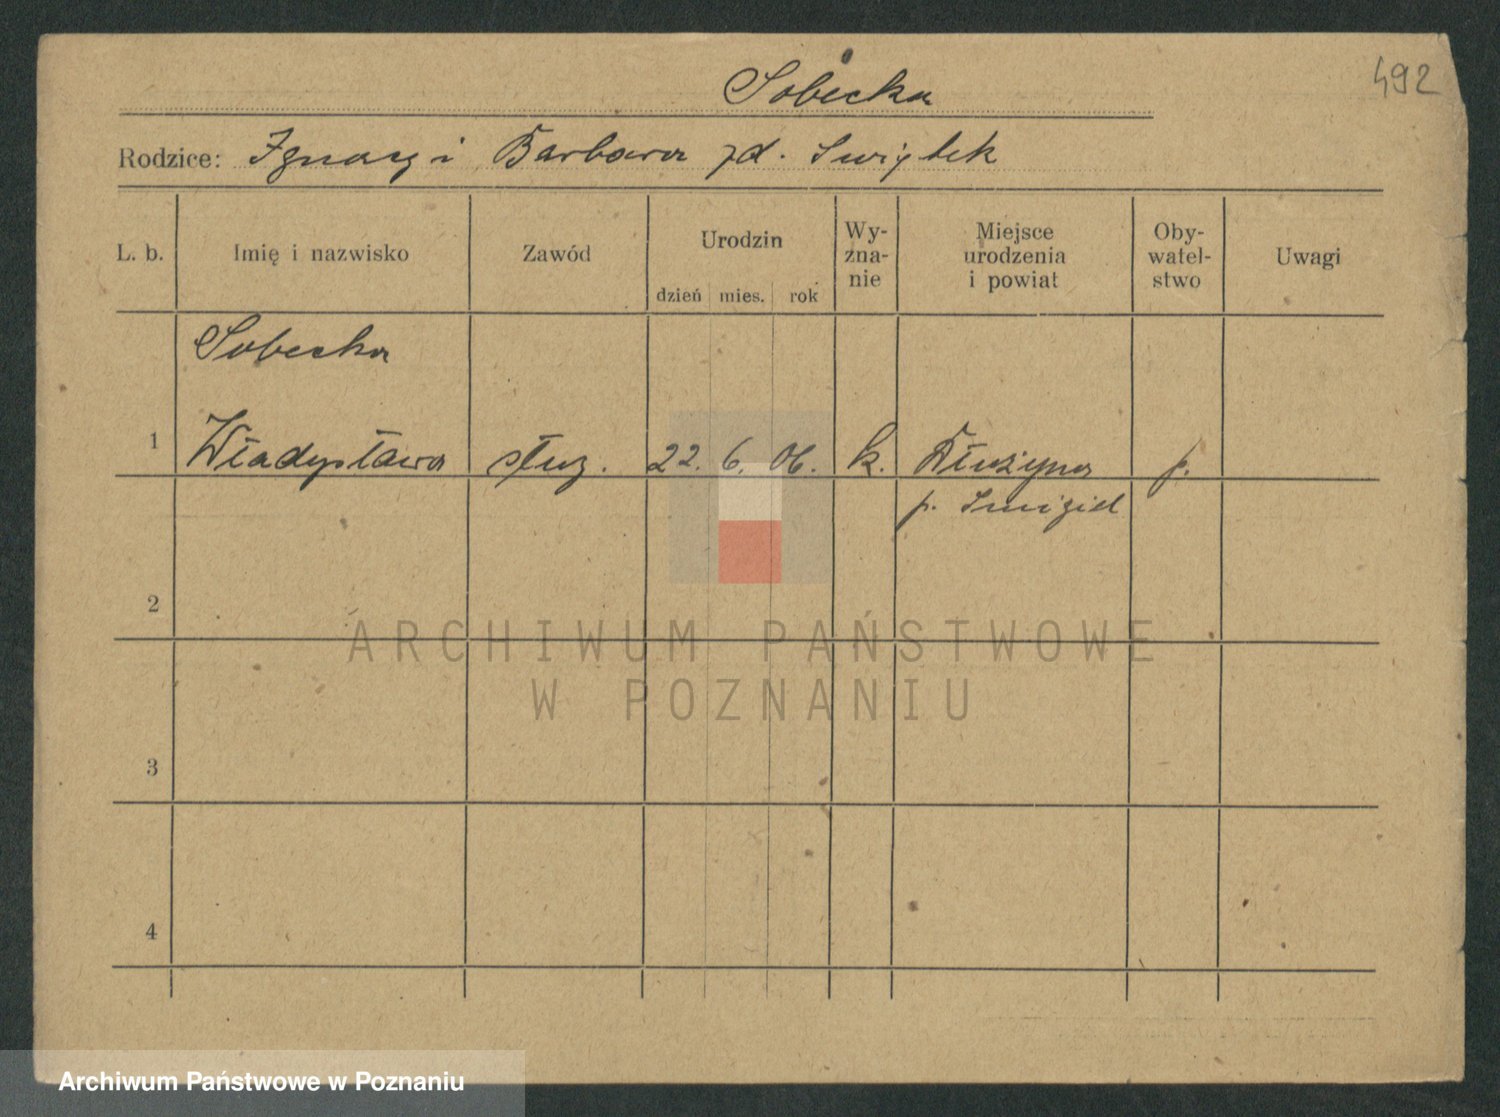 492
Sobecka
Rodzice: Ignacy i Barbara zd. Swiątek
L. b.
Imię i nazwisko
Zawód
Urodzin
dzień mies. rok
Wy-
zna-
nie
Miejsce
urodzenia
i powiat
Oby-
watel-
stwo
Uwagi
Sobecka
1 Władysława służ. 22. 6. 06. k. Dłużyna p.
p. Smigiel
2
3
4
ARCHIWUM PAŃSTWOWE
W POZNANIU
Archiwum Państwowe w Poznaniu